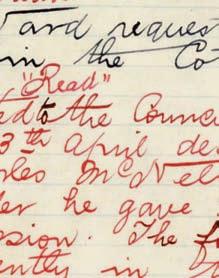 ard reques
in the Co
"Read"
ed to the Counci
3th April de
rles McNel
der he gave
ssion. The f
ently in